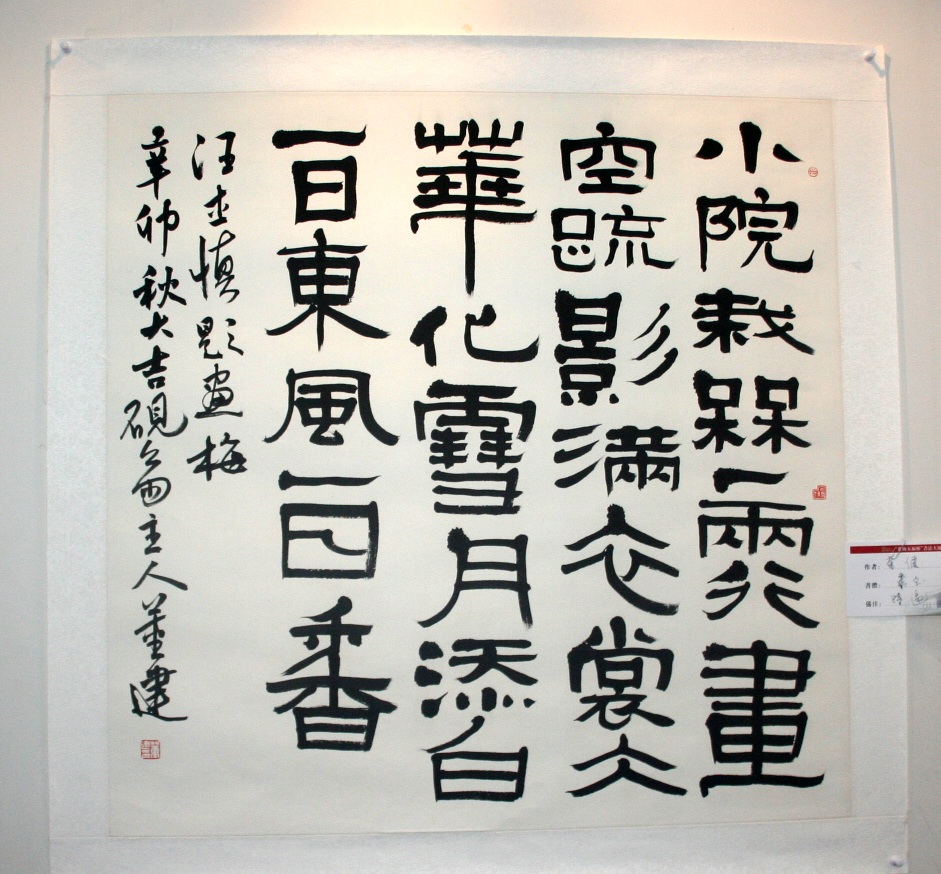 小院栽槑一兩行畫
空疏影滿衣裳仌
華化雪月添白
一日東風一日香
汪士慎題畫梅
辛卯秋大吉硯主人董建
作者：董建
書體：
備注：